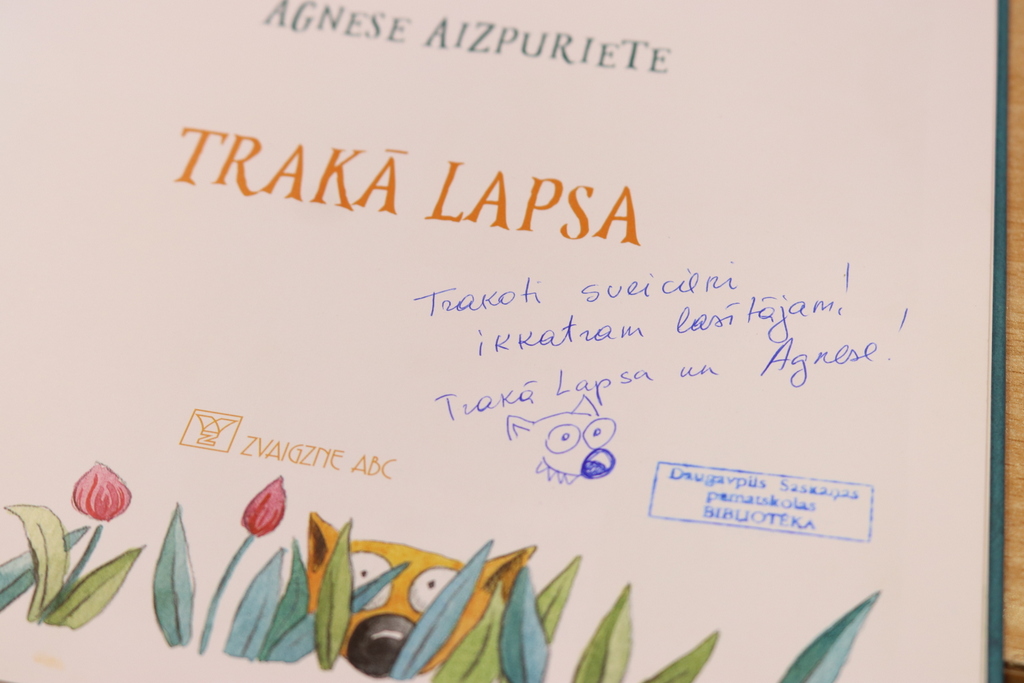 AGNESE AIZPURIETE
TRAKĀ LAPSA
Trakoti sveicieni
ikkatram lasītājam!
Trakā Lapsa un Agnese!
ZVAIGZNE ABC
Daugavpils Saskaņas
pamatskolas
BIBLIOTĒKA